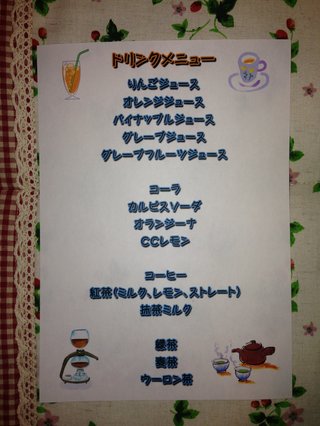 ドリンクメニュー
りんごジュース
オレンジジュース
パイナップルジュース
グレープジュース
グレープフルーツジュース
コーラ
カルピスソーダ
オランジーナ
CCレモン
コーヒー
紅茶(ミルク、レモン、ストレート)
抹茶ミルク
緑茶
麦茶
ウーロン茶